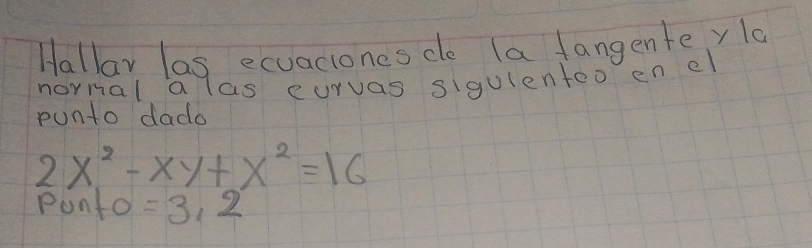 Hallar las ecuaciones de la tangente y la
normal a las curvas siguientes en el
punto dado
2x² - xy + x² = 16
Punto = 3, 2